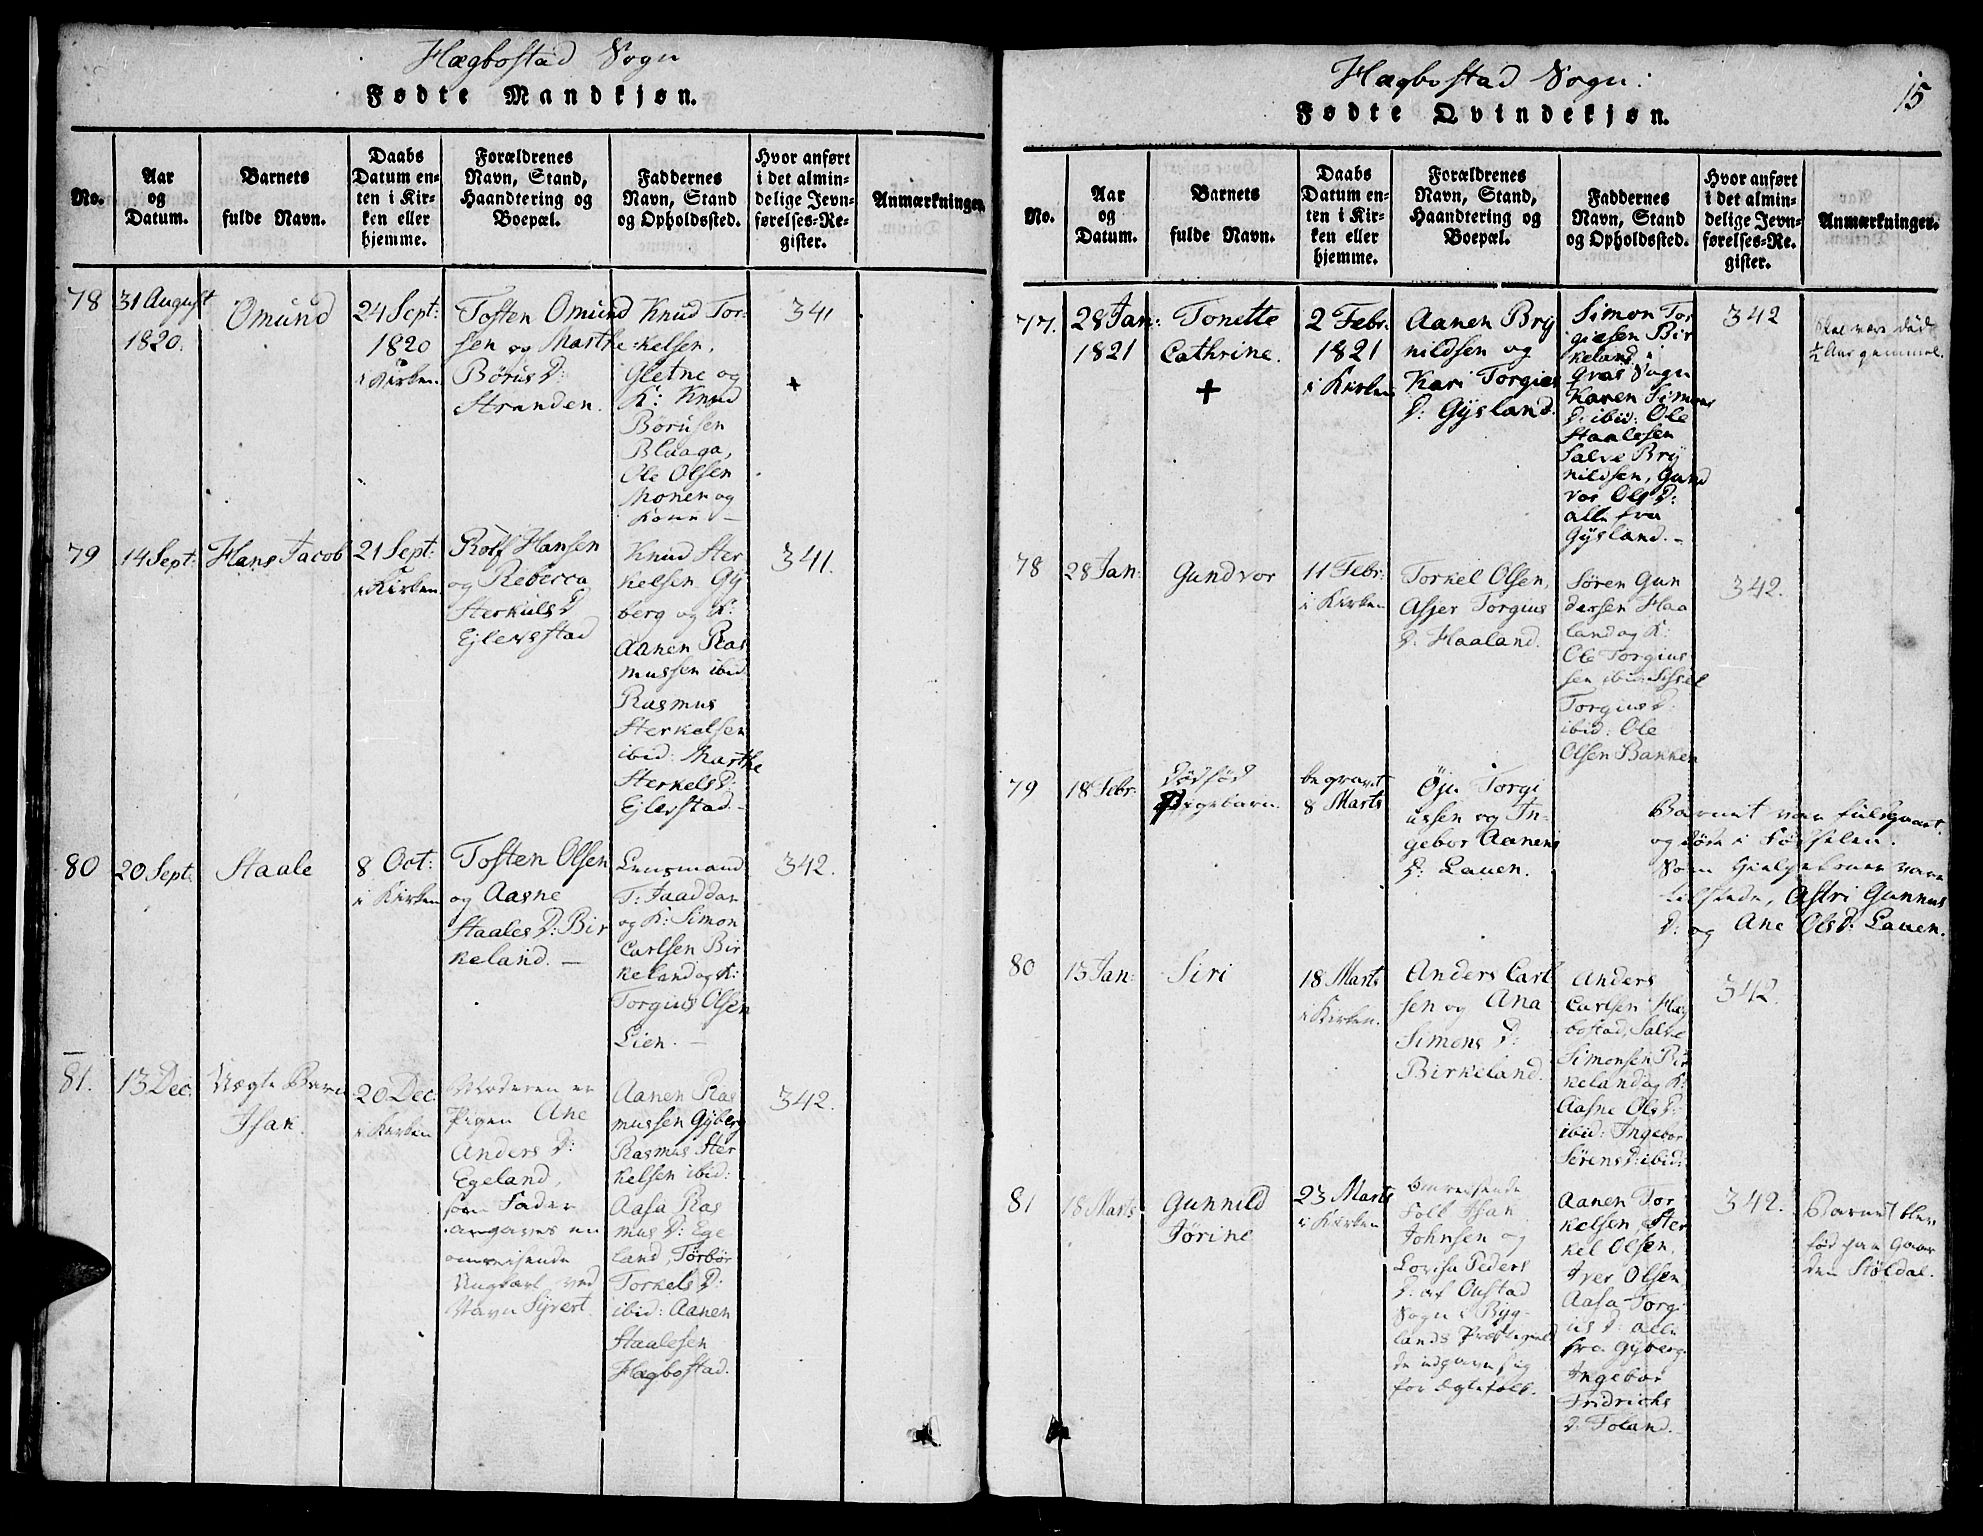 Hægbostad Sogn
Fødte Mandkjøn.
No.
Aar
og
Datum.
Barnets
fulde Navn.
Daabs
Datum en-
ten i Kir-
ken eller
hjemme.
Forældrenes
Navn, Stand,
Haandtering og
Boepæl.
Faddernes
Navn, Stand
og Opholdssted.
Hvor anført
i det almin-
delige Jevn-
førelses-Re-
gister.
Anmærkninger.
78
31 August
1820.
Omund
24 Sept:
1820
i Kirken
Tosten Omund
sen og Marthe
Børus D:
Stranden.
Knud Tor-
kelsen,
Gletne og
K: Knud
Børusen
Blaaga,
Ole Olsen
Monen og
Kone –
341
+
79
14 Sept:
Hans Jacob
21 Sept:
i Kirken
Rolf Hansen
og Rebecca
Sterkuls D
Ejlersstad
Knud Ster
kelsen Gy
berg og K:
Aanen Ras
mussen ibid
Rasmus
Sterkelsen
ibid: Marthe
Sterkels D:
Ejlerstad.–
341.
80
20 Sept:
Staale
8 Oct:
i Kirken
Tosten Olsen
og Aasne
Staales D: Bir
keland. –
Lensmand
T: Faaddan
og K: Simon
Carlsen Bir
keland og K:
Torgius Olsen
Lien. –
342.
81.
13 Dec:
Uægte Barn
Isak.
20 Dec:
i Kirken
Moderen er
Pigen Ane
Anders D:
Egeland,
som Fader
angaves en
omreisende
Ungkarl, ved
Navn Syvert.
Aanen Ras
mussen Gyberg
Rasmus Ster
kelsen ibid:
Aasa Ras
mus D: Ege
land, Torbor
Torkels D:
ibid: Aanen
Staalesen
Hægbostad.
342.
Hægbostad Sogn:
15
Fødte Qvindekjøn.
No.
Aar
og
Datum.
Barnets
fulde Navn.
Daabs
Datum en-
ten i Kir-
ken eller
hjemme.
Forældrenes
Navn, Stand,
Haandtering og
Boepæl.
Faddernes
Navn, Stand
og Opholdssted.
Hvor anført
i det almin-
delige Jevn-
førelses-Re-
gister.
Anmærkninger.
77.
28 Jan:
1821
Tonette
Cathrine.
+
2 Febr:
1821
i Kirken
Aanen Bry
nildsen og
Kari Torgius
D: Gysland.
Simon Tor
giesen Bir
keland i
Qvas Sogn
Karen Simons
D: ibid: Ole
Staalesen
Salve Bry
nildsen, Gund
vor Ols D:
alle fra
Gysland.–
342
skal være død
1/2 Aar gammel.
78
28 Jan:
Gundvor
11 Febr:
i Kirken
Torkel Olsen,
Asjer Torgius
D: Haaland.
Søren Gun
dersen Haa
land og K:
Ole Torgius
sen ibid: Sissel
Torgius D:
ibid: Ole
Olsen Bakken
342.
79
18 Febr:
Dødfød
Pigebarn.
begravet
8 Marts
Øju Torgi
ussen og In-
gebor Aanens
D: Lauen.
Barnet var fulbaaret
og døde i Fødselen.
Som Hielpekoner vare
tilstede, Astri Gunnus
D: og Ane Ols D: Lauen.
80
13 Jan:
Siri
18 Marts
i Kirken.
Anders Carl
sen og Ana
Simons D:
Birkeland.
Anders
Carlsen Hæg
bostad, Salve
Simonsen Bir
keland og K:
Aasne Ols D:
ibid: Ingebor
Sørens D: ibid:
342.
81
18 Marts
Gunnild
Jørine
23 Marts
i Kirken
Omreisende
Folk Isak
Johnsen og
Lovisa Peders
D: af Oustad
Sogn i Byg
lands Præstegield
de udgave sig
for Ægtefolk.
Aanen Tor
kelsen, Ster
kel Olsen,
Iver Olsen,
Aasa Torgi
us D: alle
fra Gyberg
Ingebor
Fridrichs
D: Foland.–
342.
Barnet blev
fød paa Gaar
den Støldal.